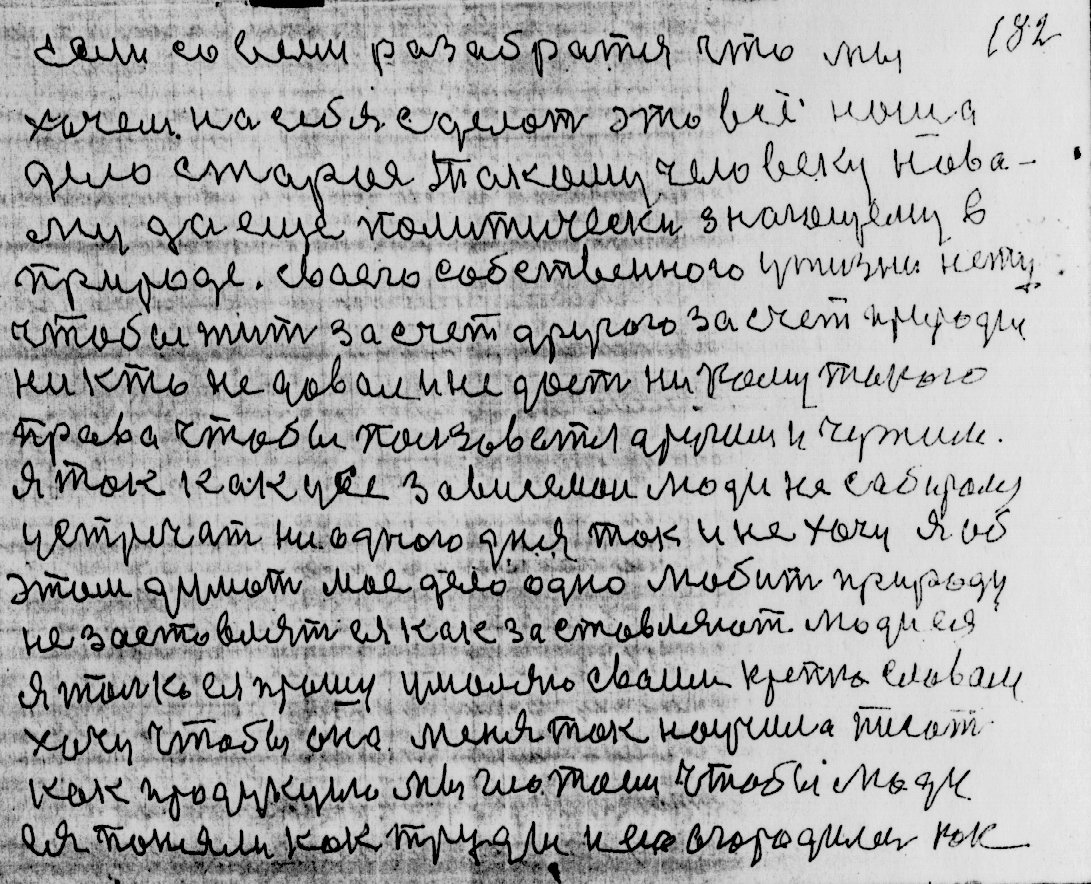 182
если со всеми разабратя что мы
хочем на себя сделат это всё наша
дело старое такому человеку нова-
му да еще политически знающему в
природе. своего собственного у жизни нету.
чтобы жит за счет другого за счет природы
никто не довал и не дост никому такого
права чтобы ползоватя другим и чужим.
я так как усе зависемои люди не сабираюу
устречат ни одного дня так и не хочу я об
этом думат мое дело одно любит природу
не заставлятся как заставляют люди ея
я толко ея прошу умоляю своим крепко словам
хочу чтобы она меня так научила писат
как продукцыю мыслю таму чтобы люди
ея поняли как труды и ею огородилис как